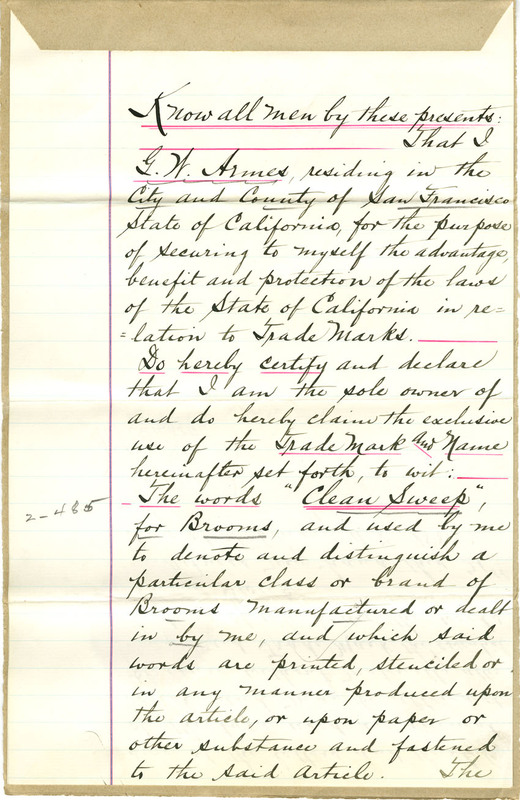 Know all men by these presents:
That I
G. W. Armes, residing in the
City and County of San Francisco
State of California, for the purpose
of securing to myself the advantage,
benefit and protection of the laws
of the State of California in re=
=lation to Trade Marks.
Do hereby certify and declare
that I am the sole owner of
and do hereby claim the exclusive
use of the Trade Mark and Name
hereinafter set forth, to wit:
The words "Clean Sweep",
2-485
for Brooms, and used by me
to denote and distinguish a
particular class or brand of
Brooms manufactured or dealt
in by me, and which said
words are printed, stenciled or
in any manner produced upon
the article, or upon paper or
other substance and fastened
to the said article. The